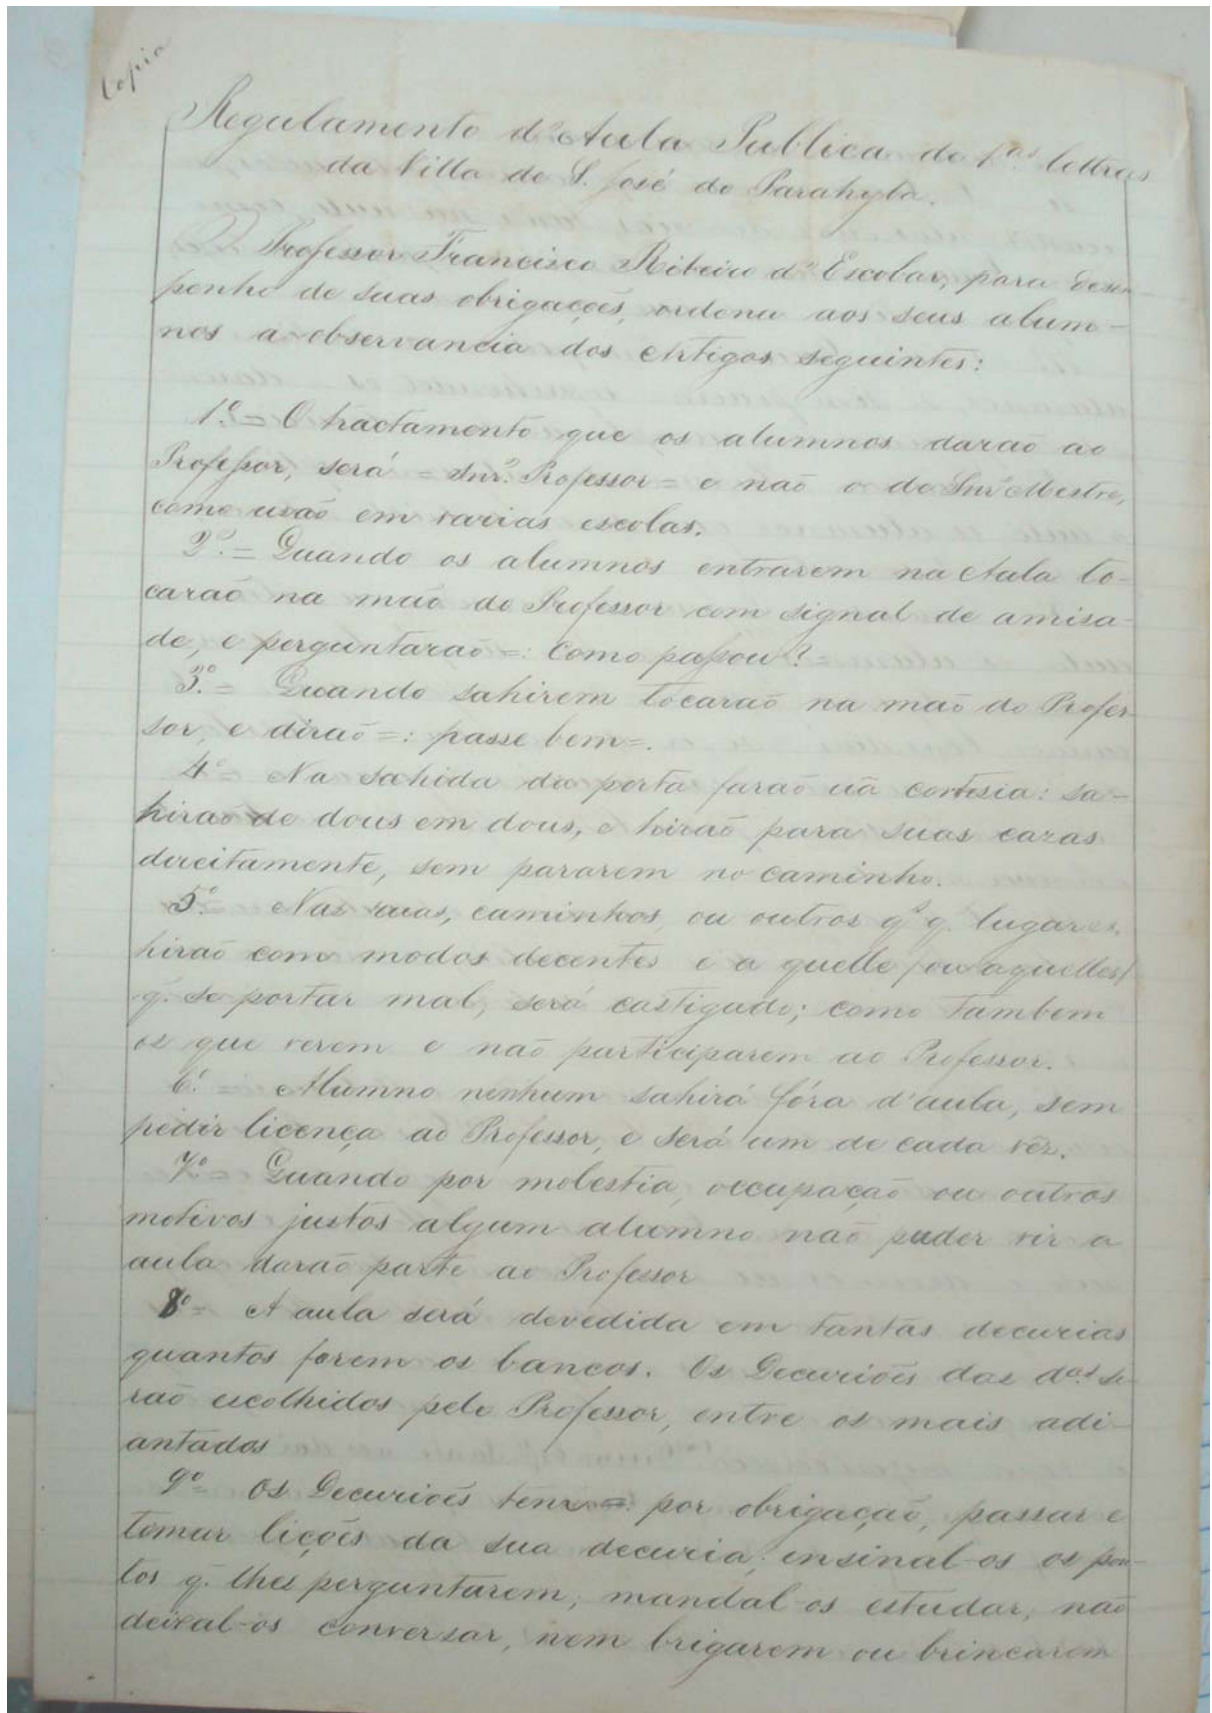 Copia
Regulamento d'Aula Publica de 1as lettras
da Villa de S. José do Parahyba.
O Professor Francisco Ribeiro d' Escobar, para desem-
penho de suas obrigações, ordena aos seus alum-
nos a observancia dos Artigos seguintes:
1º = O tractamento que os alumnos darão ao
Professor, será = Snr. Professor = e não o de Snr Mestre,
como usão em varias escolas.
2º = Quando os alumnos entrarem na Aula to-
carão na mão do Professor com signal de amisa-
de, e perguntarão =: Como passou?
3º = Quando sahirem tocarão na mão do Profes-
sor, e dirão =: passe bem =.
4º = Na sahida da porta farão uã cortesia: sa-
hirão de dous em dous, e hirão para suas cazas
direitamente, sem pararem no caminho.
5º Nas ruas, caminhos, ou outros q. q. lugares
hirão com modos decentes e a quelle (ou aquelles)
q. se portar mal, será castigado; como tambem
os que verem e não participarem ao Professor.
6º = Alumno nenhum sahirá fóra d'aula, sem
pedir licença ao Professor, e será um de cada vez.
7º = Quando por molestia, occupação ou outros
motivos justos algum alumno não puder vir a
aula darão parte ao Professor
8º = A aula será devedida em tantas decurias
quantos forem os bancos. Os Decuriões das das se-
rão escolhidos pelo Professor, entre os mais adi-
antados
9º = Os Decuriões tem = por obrigação, passar e
tomar lições da sua decuria; insinal-os os pon-
tos q. lhes perguntarem; mandal-os estudar, não
deixal-os conversar, nem brigarem ou brincarem